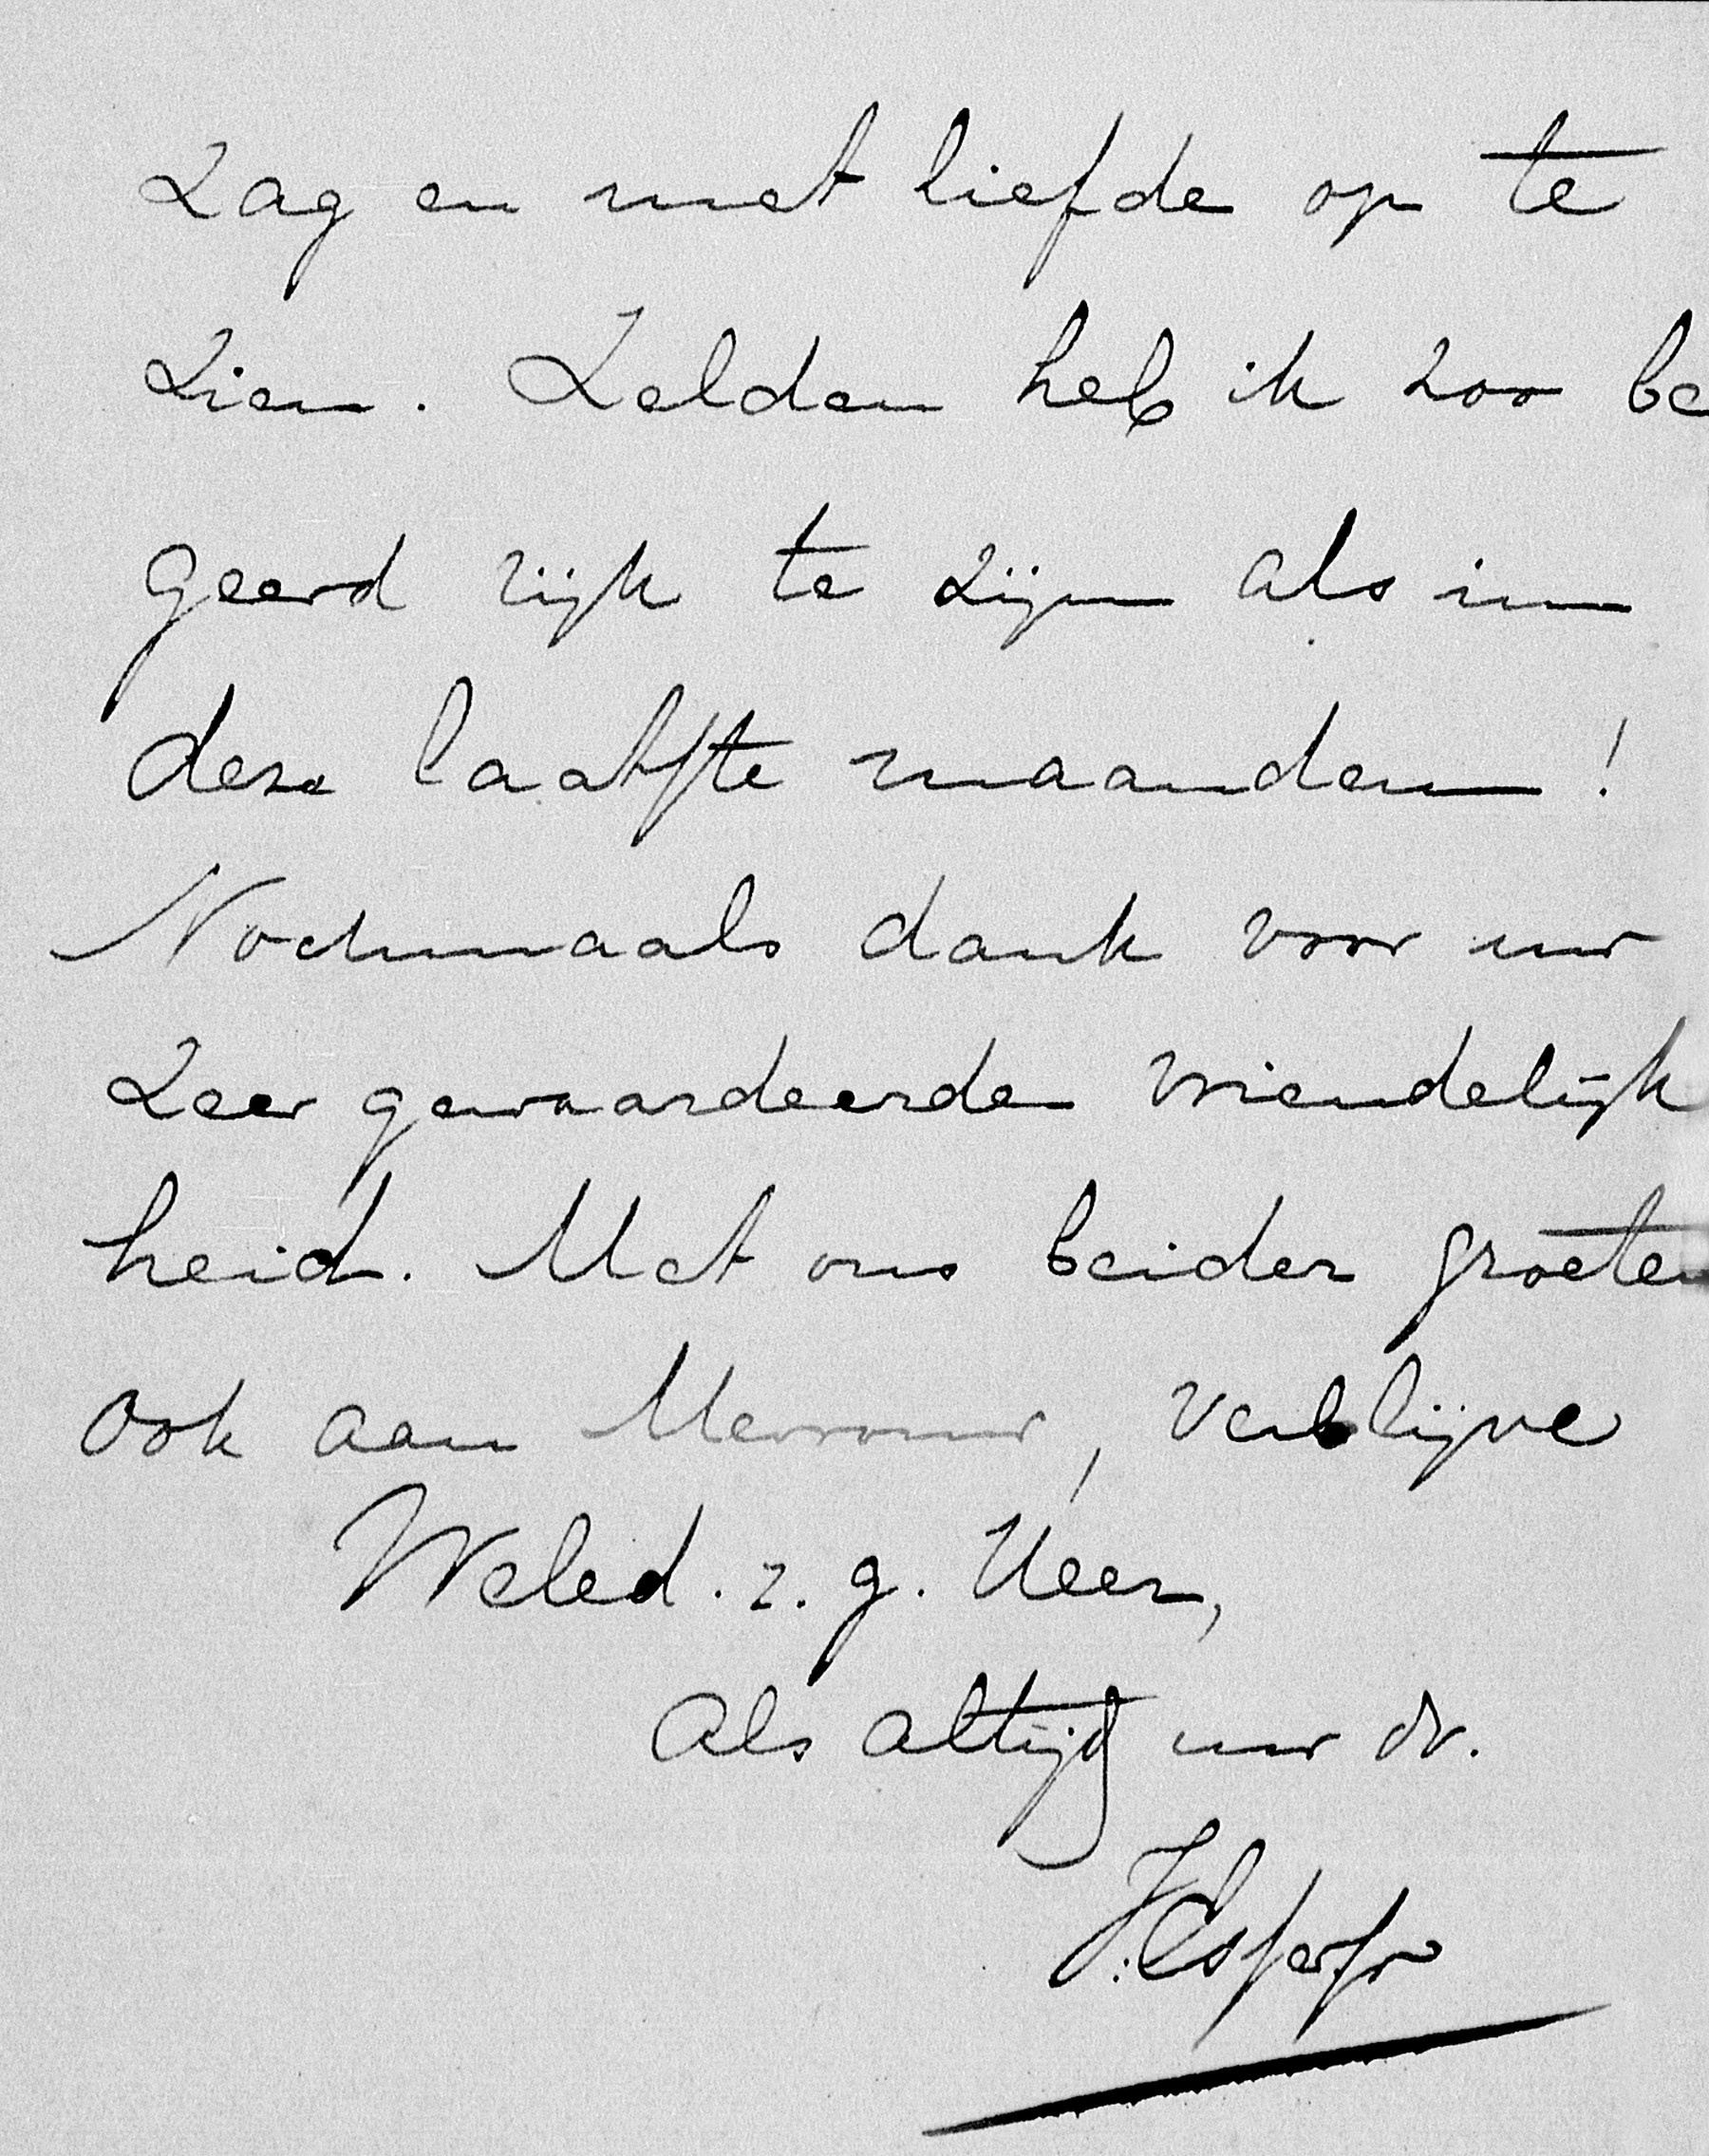 zag en met liefde op te
zien. Zelden heb ik zoo be
geerd rijk te zijn als in
deze laatste maanden!
Nochmaals dank voor uw
zeer gewaardeerde vriendelijk
heid. Met ons beider groeten
ook aan Mevrouw, verblijve
Weled. z. g. Heer,
als altijd uw dr.
J. Esser Jr